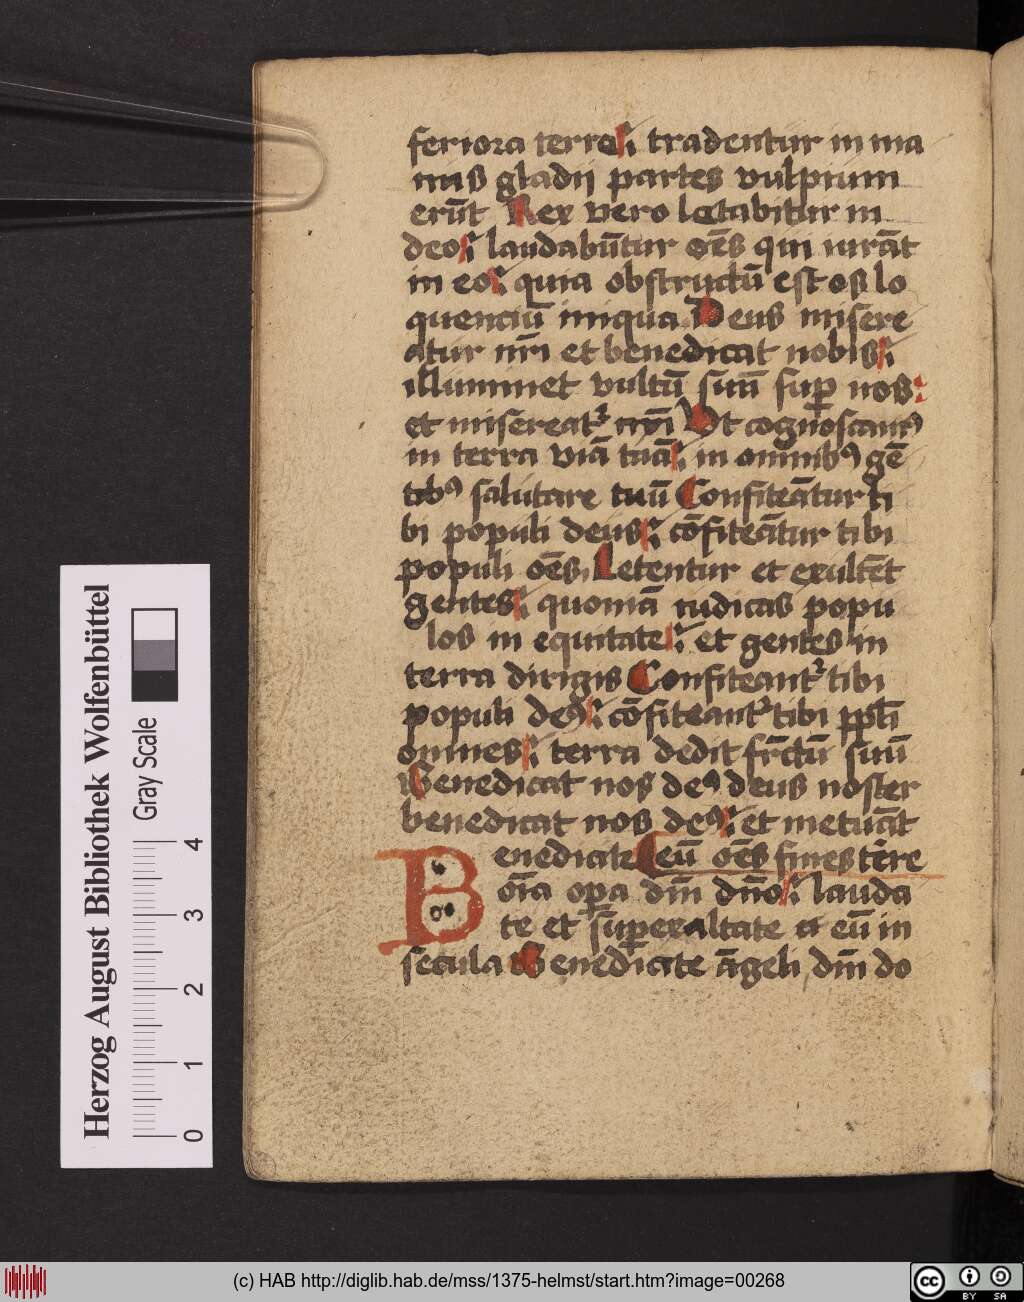 feriora terre tradentur in ma
nus gladij partes vulpium
erūt Rex vero letabitur in
deo laudabūtur oēs qui iurāt
in eo quia obstructū est os lo
quenciū iniqua Deus misere
atur nr̄i et benedicat nobis
illuminet vultū suū suꝑ nos
et misereatᷣ nr̄i Ut cognoscamꝰ
in terra viā tuā in omnibꝰ gē
tibꝰ salutare tuū Confiteātur ti
bi populi deus cōfiteātur tibi
populi oēs Letentur et exultēt
gentes quoniā iudicas popu
los in equitate et gentes in
terra dirigis Confiteantᷣ tibi
populi deꝰ cōfiteantᷣ tibi ppl̄i
omnes terra dedit fr̄ctū suū
Benedicat nos deꝰ deus noster
benedicat nos deꝰ et metuāt
Benedicite eū oēs fines terre
oīa oꝑa dn̄i dn̄o lauda
te et superexaltate eū in
secula Benedicite āgeli dn̄i do
Herzog August Bibliothek Wolfenbüttel
Gray Scale
0 1 2 3 4
(c) HAB http://diglib.hab.de/mss/1375-helmst/start.htm?image=00268
cc BY SA